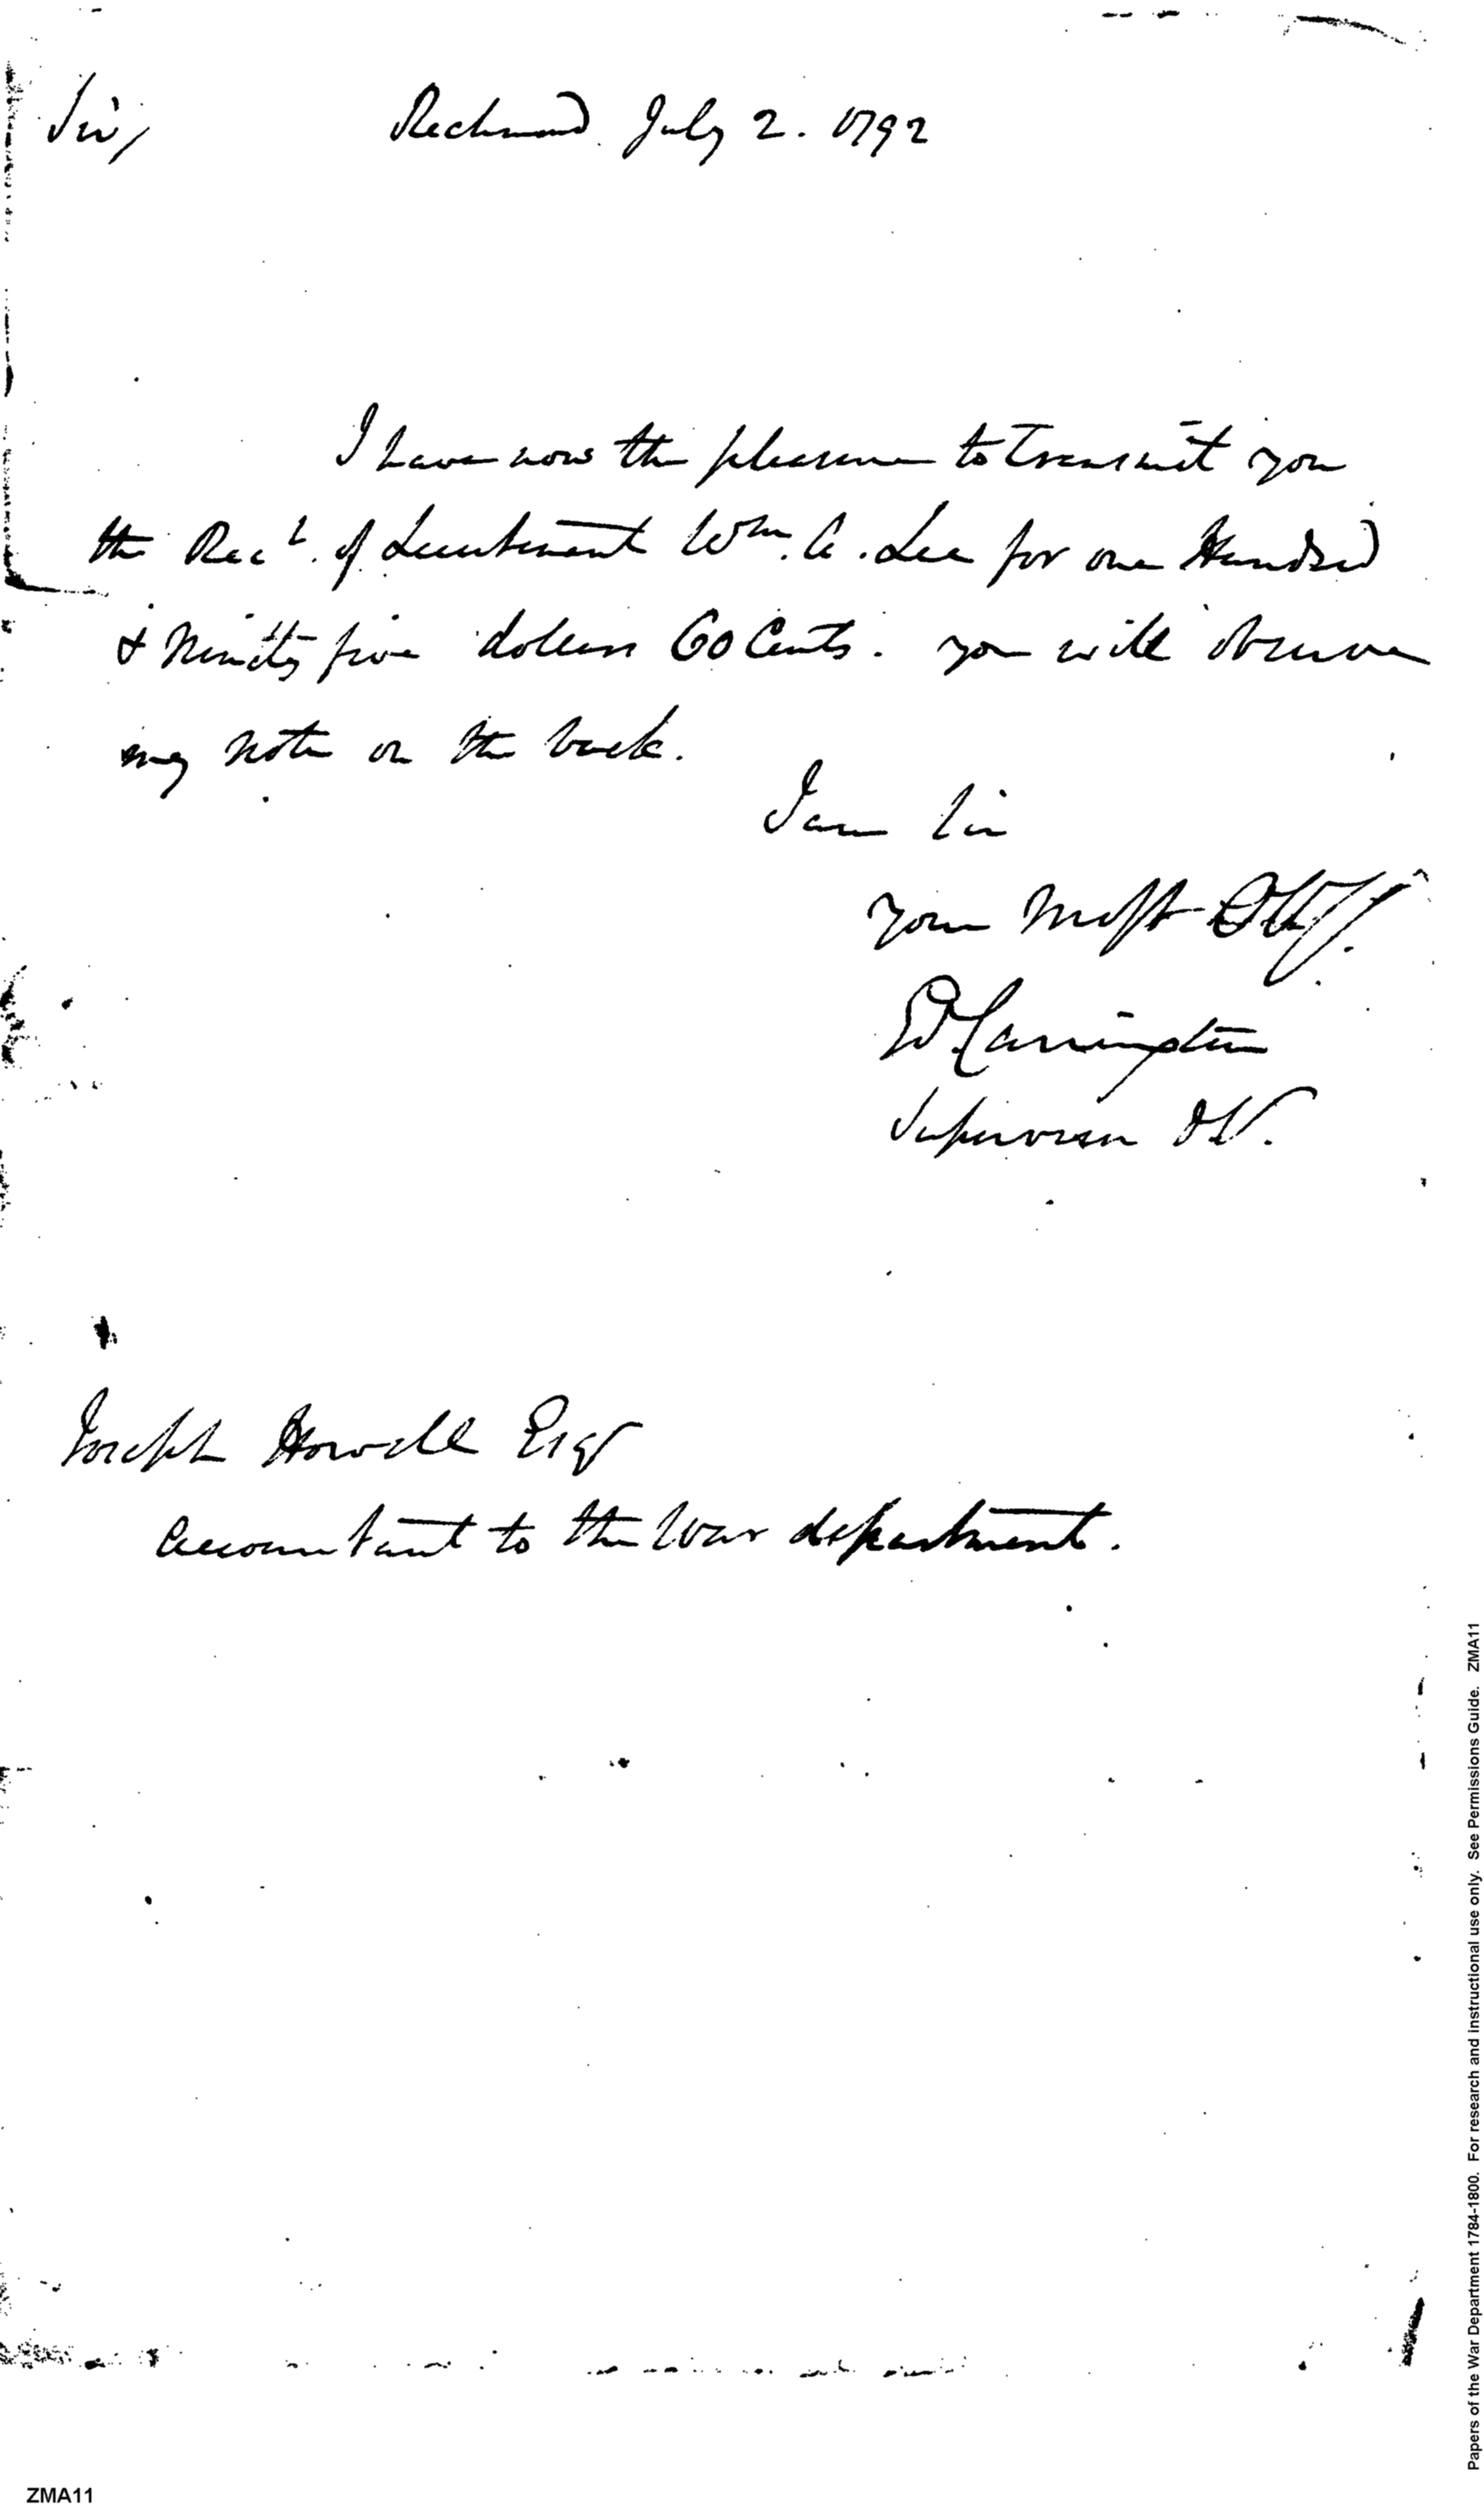 Sir, Richmond July 2. 1792
I have now the pleasure to transmit you
the Rect. of Lieutenant Wm. A. Lee for one Hundred
& Ninety five dollars 60 Cents. you will observe
my note on the back.
I am Sir
your Most
Ed Carrington
Supervisor
Joseph Howell Esqr
Accountant to the War department.
Papers of the War Department 1784-1800. For research and instructional use only. See Permissions Guide. ZMA11
ZMA11